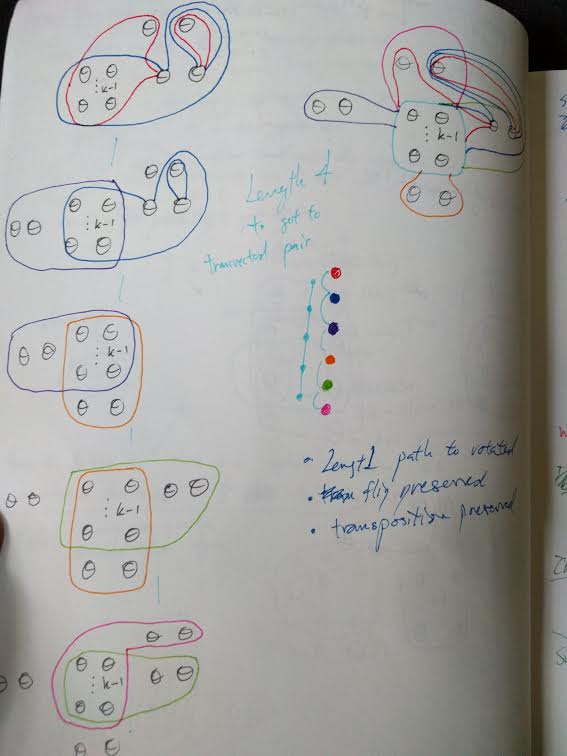 k-1
k-1
k-1
Length 4
to get to
transvected pair
k-1
k-1
k-1
• Lengt1 path to rotated
• flip preserved
• transposition preserved